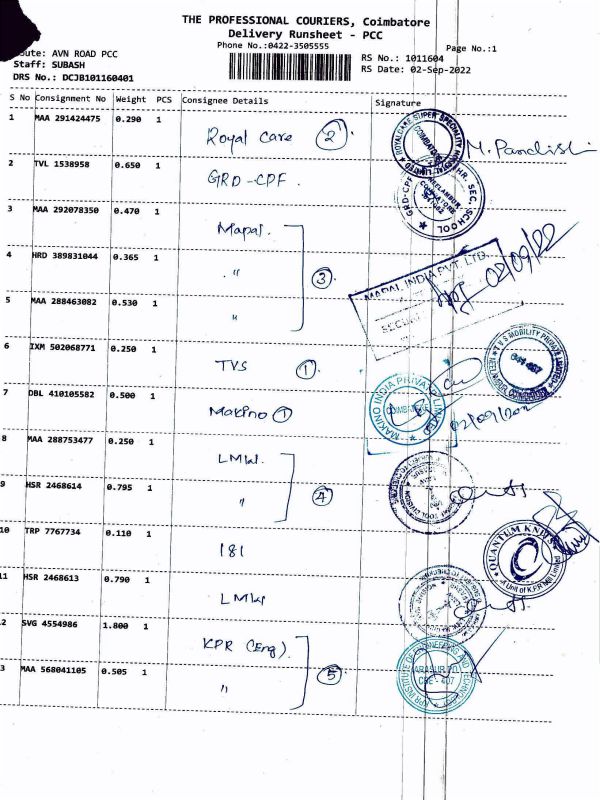 THE PROFESSIONAL COURIERS, Coimbatore
Delivery Runsheet - PCC
Phone No.:0422-3505555
Page No.:1
oute: AVN ROAD PCC
Staff: SUBASH
DRS No.: DCJB101160401
RS No.: 1011604
RS Date: 02-Sep-2022
S No Consignment No Weight PCS Consignee Details Signature
1 MAA 291424475 0.290 1 Royal Care 2 M. Pandish
2 TVL 1538958 0.650 1 GRD-CPF.
3 MAA 292078350 0.470 1 Mapal.
4 HRD 389831044 0.365 1 " 3 02/09/22
MAPAL INDIA PVT. LTD.
5 MAA 288463082 0.530 1 "
6 IXM 502068771 0.250 1 TVS 1
7 DBL 410105582 0.500 1 Makino 1
MAKINO INDIA PRIVATE LIMITED
8 MAA 288753477 0.250 1 LMW.
9 HSR 2468614 0.795 1 " 4
10 TRP 7767734 0.110 1 181
QUANTUM KNITS
11 HSR 2468613 0.790 1 LMW
2 SVG 4554986 1.800 1 KPR (Eng).
3 MAA 568041105 0.505 1 " 5
KPR INSTITUTE OF ENGINEERING AND TECHNOLOGY
ARASUR PO
CBE - 407